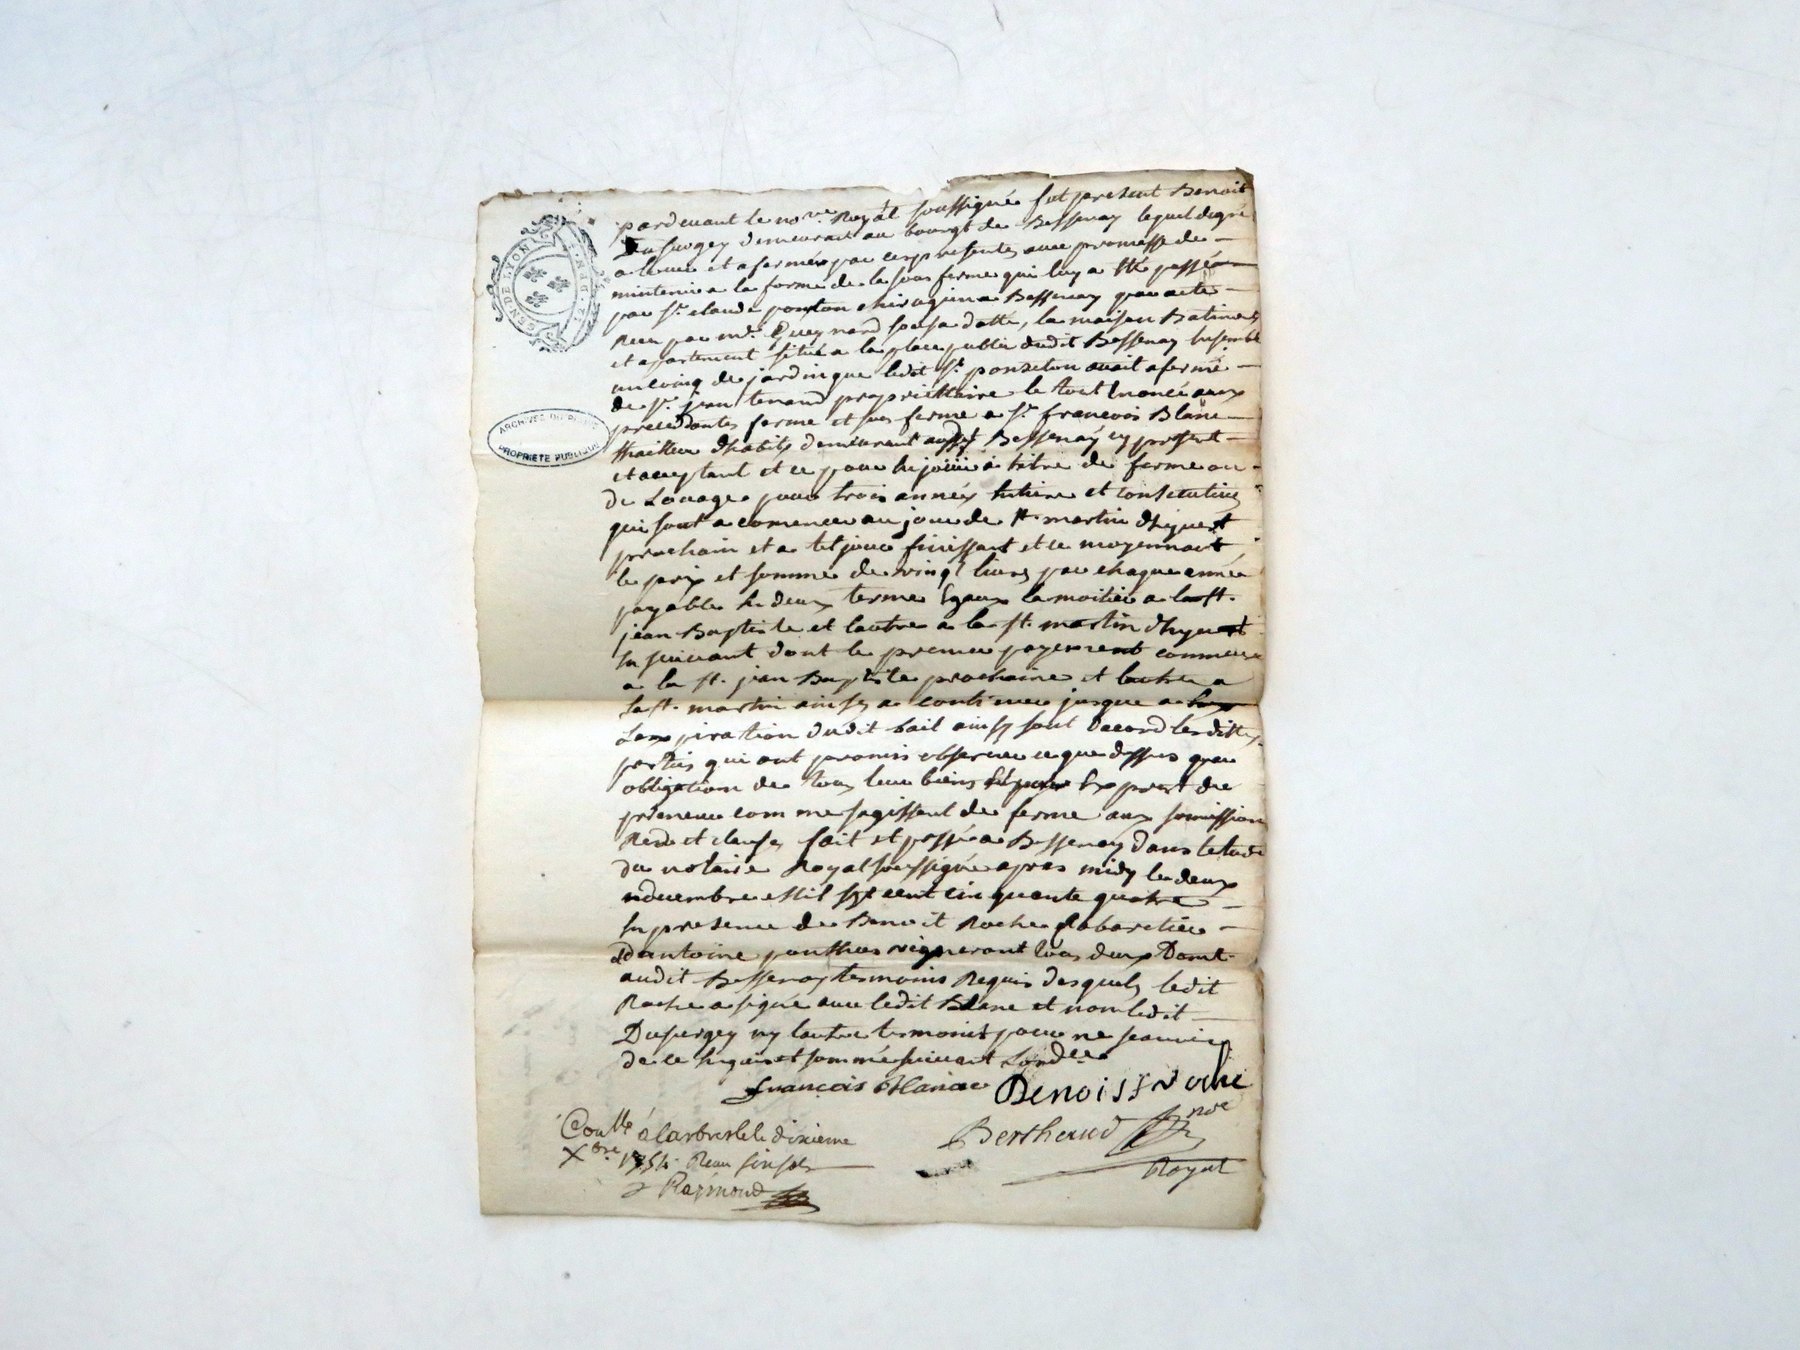 GEN. DE LYON
ARCHIVES DU RHONE
PROPRIETE PUBLIQUE
pardevant le nore. Royal soussigné fut present Benoit
Dusurgey demeurant au bourgt de Bessenay lequel degré
a loué et afermé par ces presentes avec promesse de
maintenir a la forme de la sous ferme qui luy a été passée
par Sr. claude ponston chirugien a Bessenay par acte
Receu par me. Queynard sous sa datte, la maison Batiments
et apartement situé a la place public dudit Bessenay ensemble
un coing de jardin que ledit Sr. ponston avait afermé
de Sr. jean tenand propriettaire le tout Enoncé aux
precedentes ferme et sous ferme a Sr. francois Blanc
thailleur dhabits demeurant audit Bessenay cy present
et aceptant et ce pour en jouir a titre de ferme ou
de Louage pour trois années Entiere et consecutives
qui sont a comencer au jour de st. martin dhyvert
prochain et a tel jour finissant et ce moyennant
le prix et somme de vingt livres par chaque année
payable En deux terme Egaux la moitier a la st.
jean Baptiste et lautre a la st. martin dhyvert
En suivant dont le premier payement commencera
a la st. jean Baptiste prochaine et lautre a
la st. martin ainsy a continuer jusque a
Lexpiration dudit bail ainsy sont Dacord lesdittes
parties qui ont promis observer ce que dessus par
obligation de tous leur biens Expres du
preneur comme sagissant de ferme aux soumissions
Rend et clauses fait et passé a Bessenay dans letude
du notaire Royal soussigné apres midy le deux
novembre mil sept cent cinquante quatre
En presence de Benoit Roche Cabaretier
Dantoine ponthus vigneront tous deux Domt.
audit Bessenay temoins Requis desquels ledit
Roche a signé avec ledit Blanc et non ledit
Dusurgey ny lautre temoins pour ne scavoir
de ce Enquis et sommé suivant Lordce
françois Blanc BENOIST Roche
Berthaud nore
Royal
Conllé á Larbresle le dixieme
Xbre 1754. Reçu six sols
Raymond